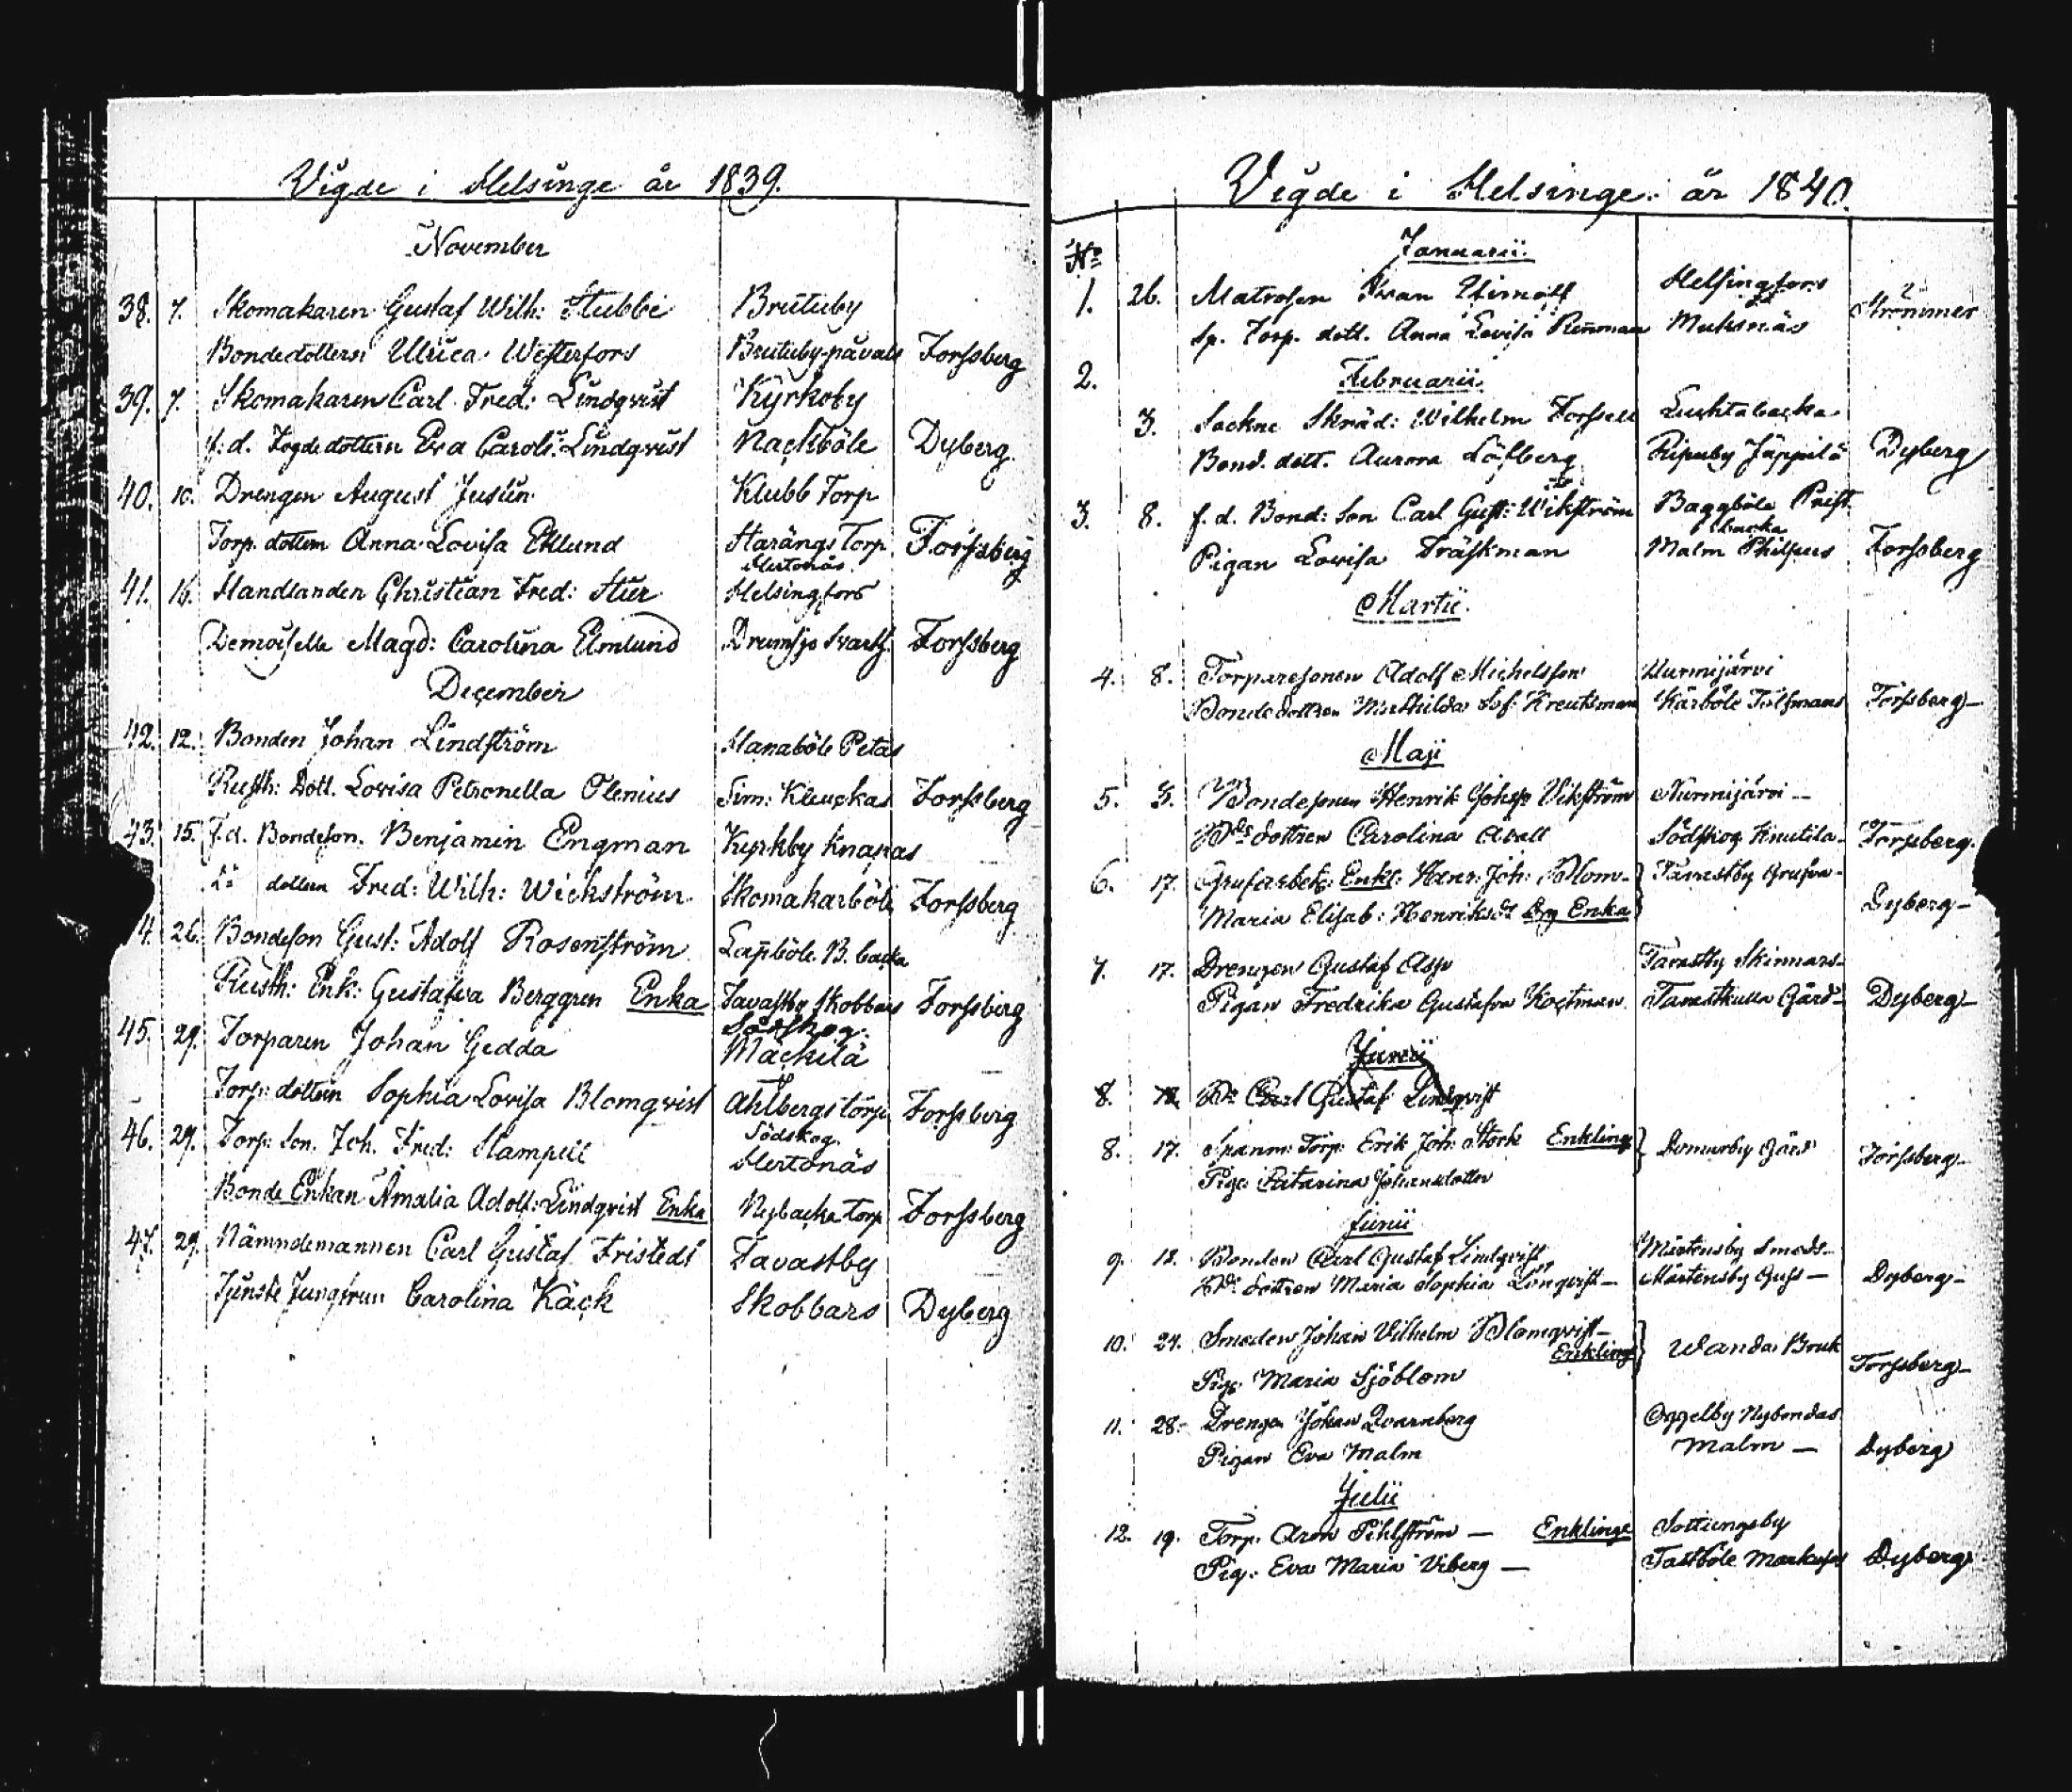 Vigde i Helsinge år 1839.
November
38. 7. Skomakaren Gustaf Wilh: Stubbe Brutuby
Bondedottern Ulrica Westerfors Brutuby Forssberg
39. 7. Skomakaren Carl Fred: Lindqvist Kyrkoby
f: d. dottern Eva Carol: Lindqvist Nackböle Dyberg
40. 10. Drengen August Juslin Klubb Torp
Torp. dottern Anna Lovisa Eklund Starängs Torp Forssberg
Hertonäs.
41. 16. Handlanden Christian Fred: Helsingfors
Demoiselle Magd: Carolina Elmlund Drumsjö Forssberg
December
42. 12. Bonden Johan Lindström Hanaböle Petas
Rusth: Dott. Lovisa Petronella Olenius Sim: Forssberg
43. 15. f. d. Bondeson. Benjamin Engman Kyrkby Knapas
dottern Fred: Wilh: Wickström Skomakarböle Forssberg
4. 26. Bondeson Gust: Adolf Rosenström Lappböle B. backa
Rusth: Enk: Gustafva Berggren Enka Tavastby Skobbars Forssberg
Södskog.
45. 29. Torparen Johan Gedda Mackilä
Torp: dottern Sophia Lovisa Blomqvist Ahlbergs torp Forssberg
Södskog
46. 29. Torp: Son. Joh. Fred: Hertonäs
Bonde Enkan Amalia Adolf: Lindqvist Enka Nybacka Torp Forssberg
47. 29. Nämndemannen Carl Gustaf Fristedt Tavastby
Jungfrun Carolina Käck Skobbars Dyberg
Vigde i Helsinge år 1840.
No Januarii.
1. 26. Matrosen Iwan Helsingfors
Sp. Torp. dott. Anna Lovisa Munksnäs Strömmer
2. Februarii.
3. Sockne Skräd: Wilhelm Forssell
Bond. dott. Aurora Löfberg Ripuby Jäppilä Dyberg
3. 8. f. d. Bond: Son Carl Gust: Wikström Baggböle
backa
Pigan Lovisa Träskman Malm Philpus Forssberg
Martii.
4. 8. Torparesonen Adolf Michelsson Nurmijärvi
Bondedottren Mathilda Sof: Kreutsman Kårböle Tolfmans Forssberg
Maji
5. 3. Bondesonen Henrik Johsp Vikström Nurmijärvi
Bds dottren Carolina Avell Södskog Knutila Forssberg.
6. 17. Grufarbet: Enkl: Henr: Joh: Blom Tavastby Grufva
Maria Elisab: Henriksdr Enka Dyberg
7. 17. Drengen Gustaf Asp Tavastby Skinnars
Pigan Fredrika Gustafva Tavastkulla Gård Dyberg
Junii
8. Bd: Carl Gustaf Lindqvist
8. 17. Torp: Erik Joh: Stork Enkling Domarby Gård Forssberg
Pig: Catarina Johansdotter
Junii
9. 18. Bonden Carl Gustaf Lindqvist Mårtensby Smeds
Bds dottren Maria Sophia Lönqvist Mårtensby Guss Dyberg
10. 24. Smeden Johan Vilhelm Blomqvist
Enkling Wanda Bruk
Pig: Maria Sjöblom Forssberg
11. 28. Drengen Johan Qvarnberg Oggelby Nybondas
Pigan Eva Malm Malm Dyberg
Julii
12. 19. Torp. Aron Pihlström Enkling Sottungsby
Pig: Eva Maria Viberg Tastböle Markusas Dyberg